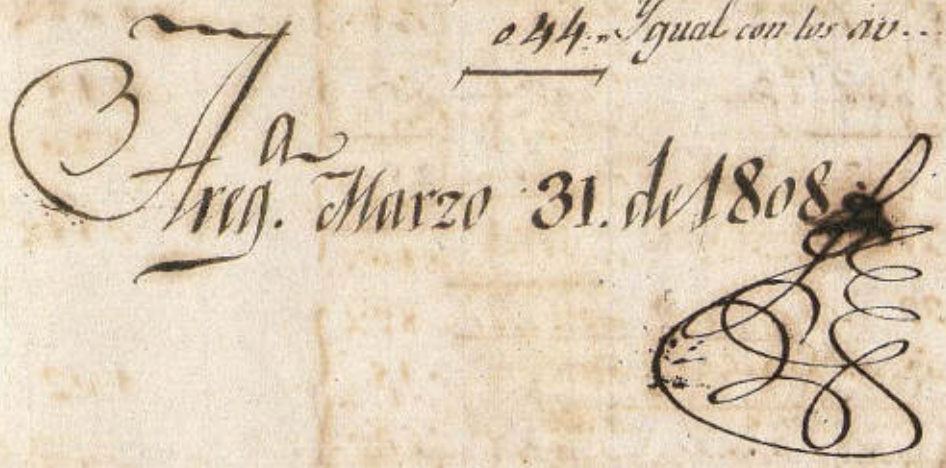 044. Ygual con los av..
Areq.a Marzo 31. de 1808